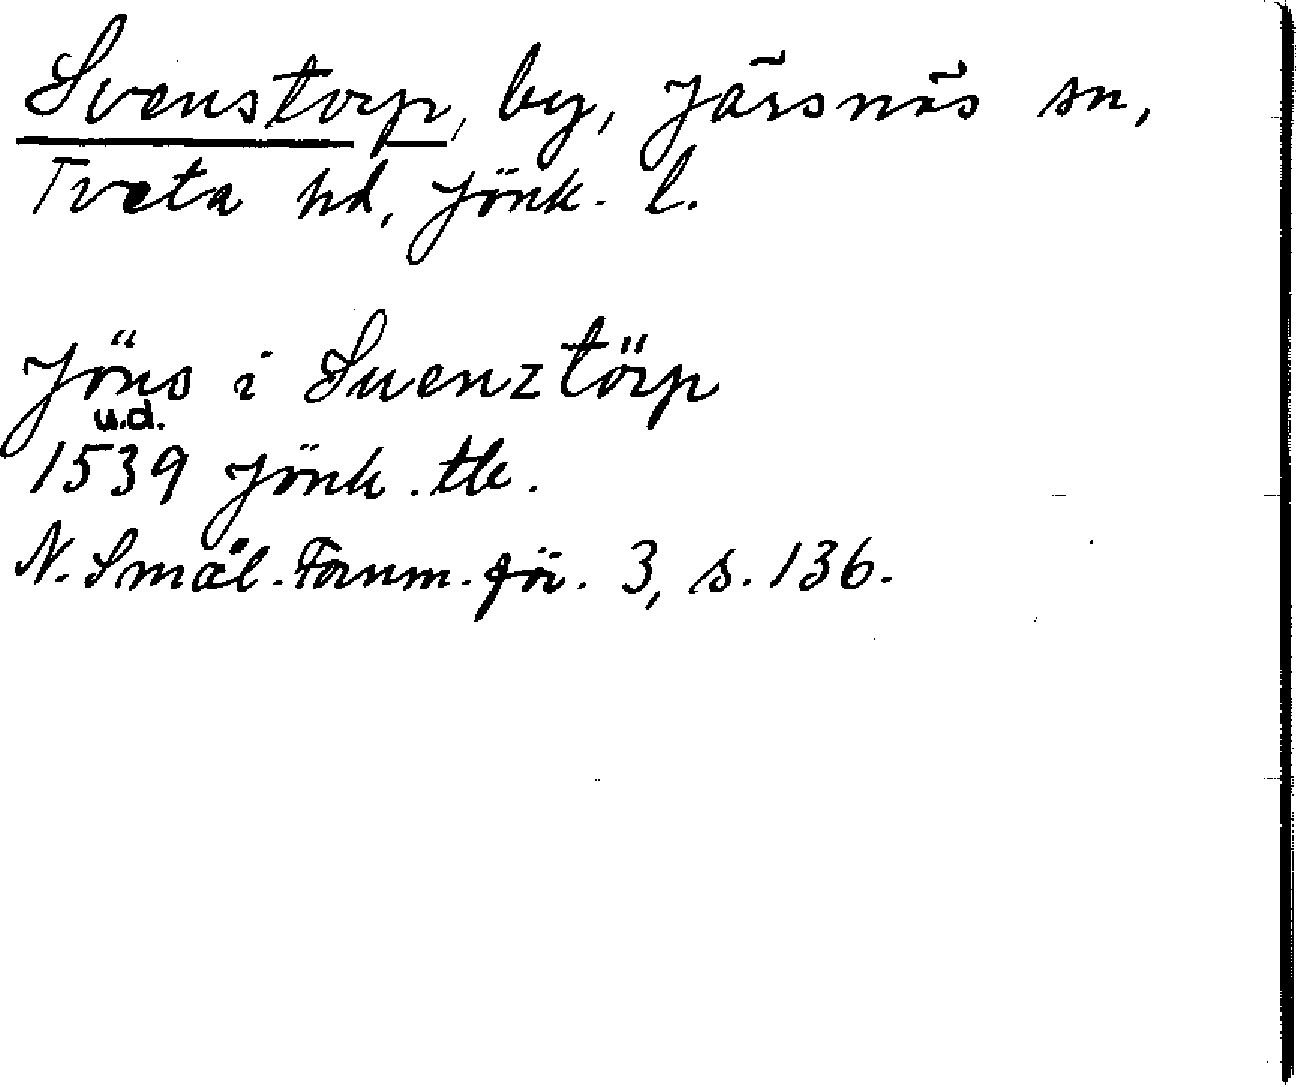 Svenstorp, by, Järsnäs sn,
Tveta hd, Jönk. l.
Jöns i Suenztörp
u.d.
1539 Jönk. tb.
N. Smål. Fornm. för. 3, s. 136.